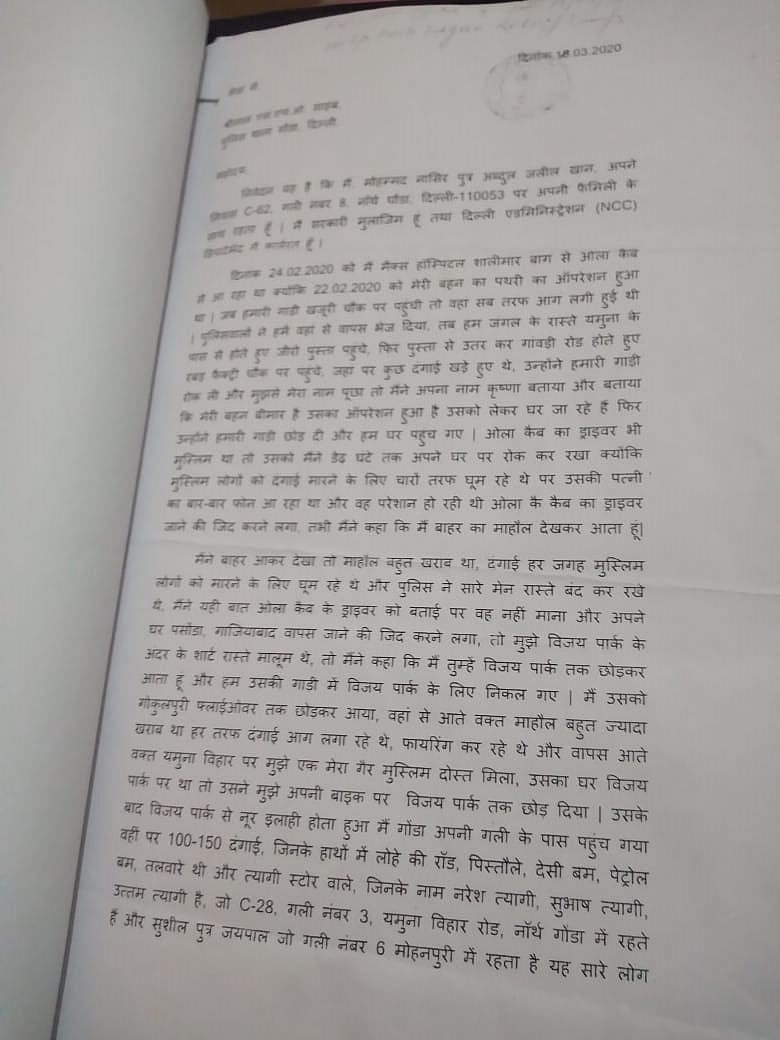 दिनांक 18.03.2020
सेवा में,
श्रीमान एस.एच.ओ. साहब,
पुलिस थाना गोंडा, दिल्ली
महोदय,
निवेदन यह है कि मैं, मोहम्मद नासिर पुत्र अब्दुल जलील खान, अपने
निवास C-62, गली नंबर 8, नॉर्थ घोंडा, दिल्ली-110053 पर अपनी फैमिली के
साथ रहता हूँ | मैं सरकारी मुलाजिम हूं तथा दिल्ली एडमिनिस्ट्रेशन (NCC)
डिपार्टमेंट में कार्यरत हूँ |
दिनांक 24.02.2020 को मैं मैक्स हॉस्पिटल शालीमार बाग से ओला कैब
में आ रहा था क्योंकि 22.02.2020 को मेरी बहन का पथरी का ऑपरेशन हुआ
था | जब हमारी गाडी खजूरी चौक पर पहुंची तो वहां सब तरफ आग लगी हुई थी
| पुलिसवालों ने हमें वहां से वापस भेज दिया, तब हम जंगल के रास्ते यमुना के
पास से होते हुए जीरो पुस्ता पहुचे, फिर पुस्ता से उतर कर गांवड़ी रोड होते हुए
रबड़ फैक्ट्री चौक पर पहुंचे, जहां पर कुछ दंगाई खड़े हुए थे, उन्होंने हमारी गाड़ी
रोक ली और मुझसे मेरा नाम पूछा तो मैंने अपना नाम कृष्णा बताया और बताया
कि मेरी बहन बीमार है उसका ऑपरेशन हुआ है उसको लेकर घर जा रहे हैं फिर
उन्होंने हमारी गाडी छोड़ दी और हम घर पहुंच गए | ओला कैब का ड्राइवर भी
मुस्लिम था तो उसको मैंने डेढ़ घंटे तक अपने घर पर रोक कर रखा क्योंकि
मुस्लिम लोगों को दंगाई मारने के लिए चारों तरफ घूम रहे थे पर उसकी पत्नी
का बार-बार फोन आ रहा था और वह परेशान हो रही थी ओला कै कैब का ड्राइवर
जाने की जिद करने लगा, तभी मैंने कहा कि मैं बाहर का माहौल देखकर आता हूं|
मैंने बाहर आकर देखा तो माहौल बहुत खराब था, दंगाई हर जगह मुस्लिम
लोगों को मारने के लिए घूम रहे थे और पुलिस ने सारे मेन रास्ते बंद कर रखे
थे, मैंने यही बात ओला कैब के ड्राइवर को बताई पर वह नहीं माना और अपने
घर पसोंडा, गाजियाबाद वापस जाने की जिद करने लगा, तो मुझे विजय पार्क के
अंदर के शार्ट रास्ते मालूम थे, तो मैंने कहा कि मैं तुम्हें विजय पार्क तक छोड़कर
आता हूँ और हम उसकी गाडी में विजय पार्क के लिए निकल गए | मैं उसको
गोकुलपुरी फ्लाईओवर तक छोड़कर आया, वहां से आते वक्त माहौल बहुत ज्यादा
खराब था हर तरफ दंगाई आग लगा रहे थे, फायरिंग कर रहे थे और वापस आते
वक्त यमुना विहार पर मुझे एक मेरा गैर मुस्लिम दोस्त मिला, उसका घर विजय
पार्क पर था तो उसने मुझे अपनी बाइक पर विजय पार्क तक छोड़ दिया | उसके
बाद विजय पार्क से नूर इलाही होता हुआ मैं गोंडा अपनी गली के पास पहुंच गया
वहीं पर 100-150 दंगाई, जिनके हाथों में लोहे की रॉड, पिस्तौले, देसी बम, पेट्रोल
बम, तलवारे थी और त्यागी स्टोर वाले, जिनके नाम नरेश त्यागी, सुभाष त्यागी,
उत्तम त्यागी है, जो C-28, गली नंबर 3, यमुना विहार रोड, नॉर्थ गोंडा में रहते
हैं और सुशील पुत्र जयपाल जो गली नंबर 6 मोहनपुरी में रहता है यह सारे लोग